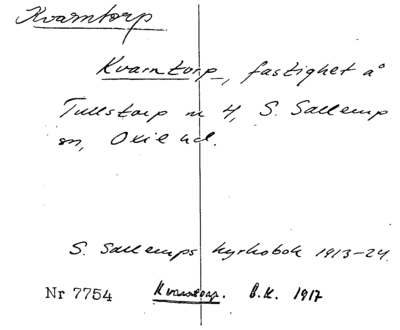 Kvarntorp
Kvarntorp, fastighet å
Tullstorp nr 4, S. Sallerup
sn, Oxie hd.
S. Sallerups kyrkobok 1913-24.
Nr 7754 Kvarntorp. B.K. 1917